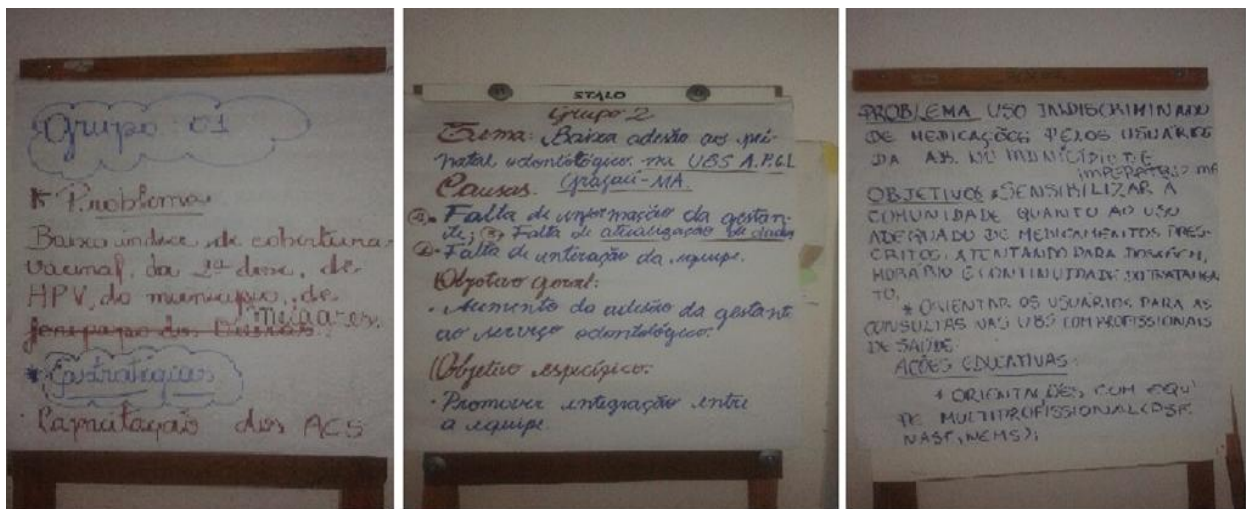 Grupo 01
* Problema
Baixo indice de cobertura
vacinal, da 2ª dose, de
HPV, do municipio, de
jenipapo dos
* Estratégias
· Capacitação dos ACS
STALO
Grupo 2
Tema: Baixa adesão ao pré
natal odontológico na UBS A.P.G.L
Causas. Grajaú-MA.
①- Falta de informação da gestan-
te; ③ Falta de atualização de dados
②- Falta de interação da equipe.
Objetivo geral:
· Aumento da adesão da gestant
ao serviço odontológico.
Objetivo específico:
· Promover integração entre
a equipe.
PROBLEMA USO INDISCRIMINADO
DE MEDICAÇÕES PELOS USUÁRIOS
DA AB. NO MUNICÍPIO DE
IMPERATRIZ MA
OBJETIVOS * SENSIBILIZAR A
COMUNIDADE QUANTO AO USO
ADEQUADO DE MEDICAMENTOS PRES-
CRITOS, ATENTANDO PARA DOSAGEM,
HORÁRIO E CONTINUIDADE DO TRATAMEN
TO,
* ORIENTAR OS USUÁRIOS PARA AS
CONSULTAS NAS UBS COM PROFISSIONAIS
DE SAÚDE.
AÇÕES EDUCATIVAS:
* ORIENTAÇÕES COM EQUI
PE MULTIPROFISSIONAL (
NASF,